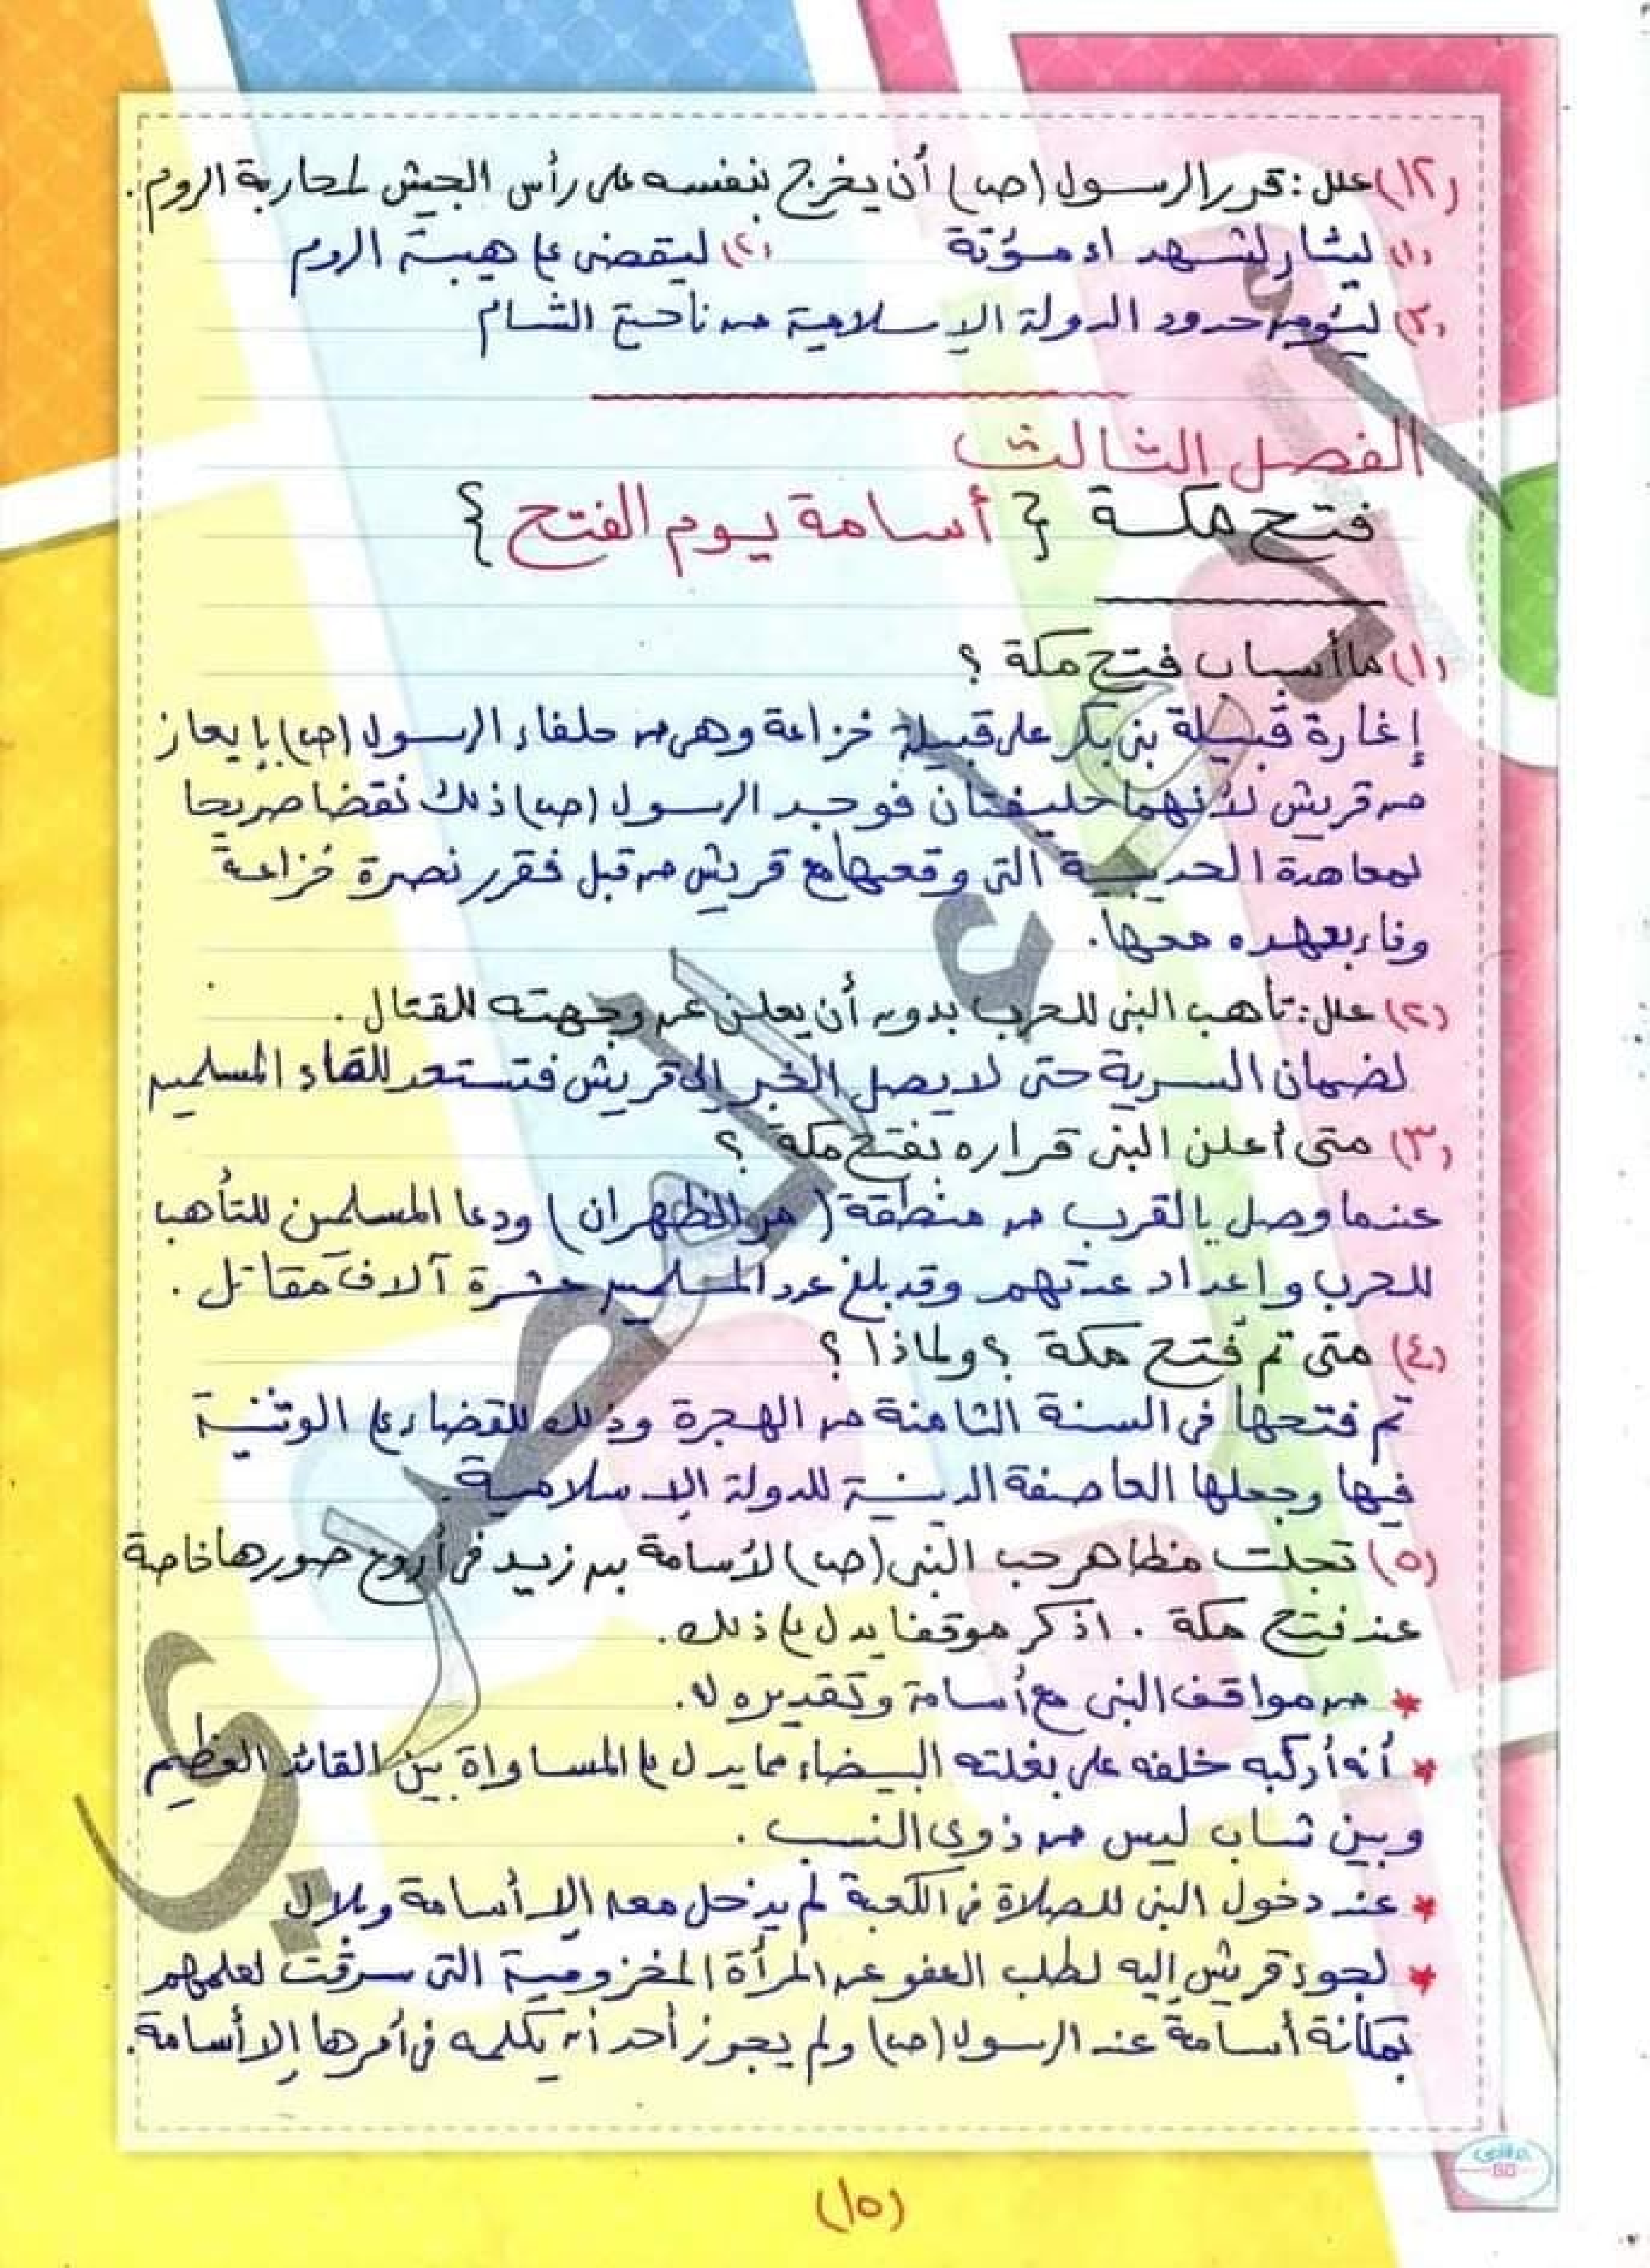 (١٢) علل : قرر الرسول (ص) أن يخرج بنفسه على رأس الجيش لمحاربة الروم .
(١) ليثأر لشهداء مؤتة (٢) ليقضى ع هيبة الروم
(٣) ليؤمن حدود الدولة الإسلامية من ناحية الشام
الفصل الثالث
فتح مكة { أسامة يوم الفتح }
(١) ما أسباب فتح مكة ؟
إغارة قبيلة بنى بكر على قبيلة خزاعة وهى من حلفاء الرسول (ص) بإيعاز
من قريش لأنهما حليفتان فوجد الرسول (ص) ذلك نقضا صريحا
لمعاهدة الحديبية التى وقعها مع قريش من قبل فقرر نصرة خزاعة
وفاء بعهده معها .
(٢) علل : تأهب النبى للحرب بدون أن يعلن عن وجهته للقتال .
لضمان السرية حتى لا يصل الخبر إلى قريش فتستعد للقاء المسلمين
(٣) متى أعلن النبى قراره بفتح مكة ؟
عندما وصل بالقرب من منطقة ( مر الظهران ) ودعا المسلمين للتأهب
للحرب وإعداد عدتهم وقد بلغ عدد المسلمين عشرة آلاف مقاتل .
(٤) متى تم فتح مكة ؟ ولماذا ؟
تم فتحها فى السنة الثامنة من الهجرة وذلك للقضاء ع الوثنية
فيها وجعلها العاصفة الدينية للدولة الإسلامية .
(٥) تجلت مظاهر حب النبى (ص) لأسامة بن زيد فى أروع صورها خاصة
عند فتح مكة . اذكر موقفا يدل ع ذلك .
* من مواقف النبى مع أسامة وتقديره له .
* أنه أركبه خلفه على بغلته البيضاء مما يدل ع المساواة بين القائد العظيم
وبين شاب ليس من ذوى النسب .
* عند دخول النبى للصلاة فى الكعبة لم يدخل معه إلا أسامة وبلال
* لجوء قريش إليه لطلب العفو عن المرأة المخزومية التى سرقت لعلمهم
بمكانة أسامة عند الرسول (ص) ولم يجوز أحد أن يكلمه فى أمرها إلا أسامة .
(١٥)